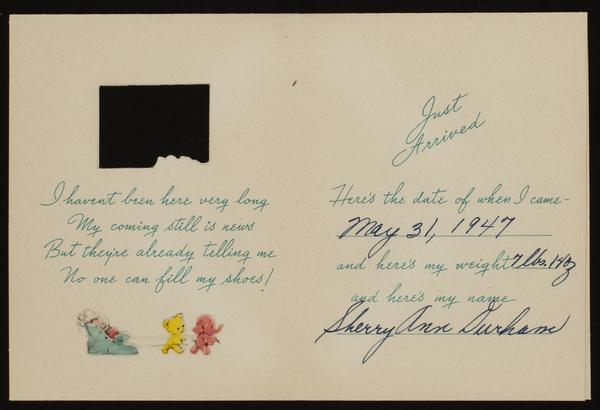 I havent been here very long
My coming still is news
But they're already telling me
No one can fill my shoes!
Just
Arrived
Here's the date of when I came-
May 31, 1947
and here's my weight 7 lbs.
and here's my name
Sherry Ann Durham